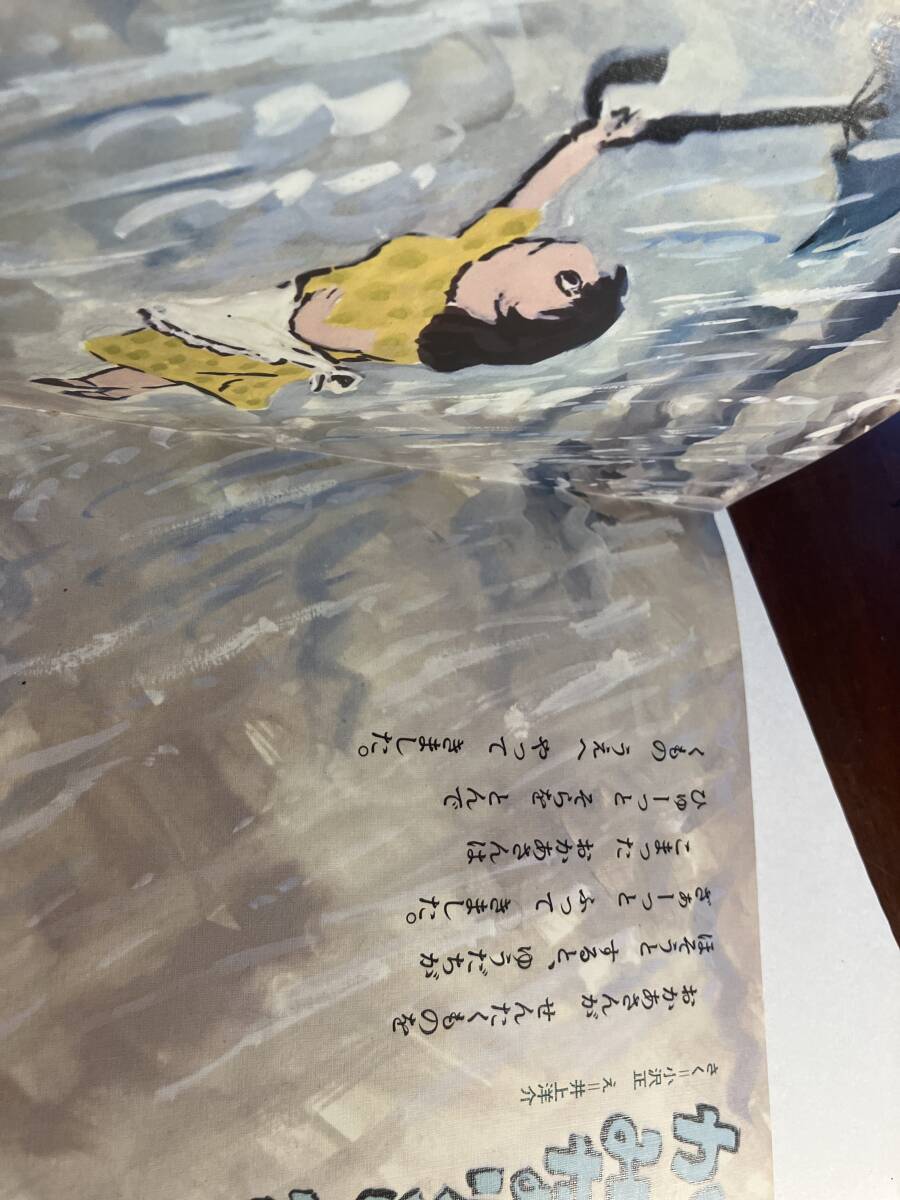 さく=小沢正 え=井上洋介
おかあさんが せんたくものを
ほそうと すると、ゆうだちが
ざあーっと ふって きました。
こまった おかあさんは
ひゅーっと そらを とんで
くもの うえへ やって きました。